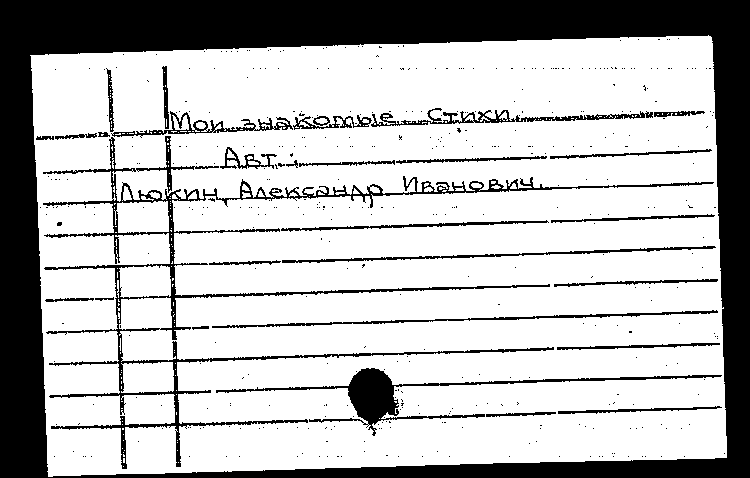 Мои знакомые. Стихи.
Авт.:
Люкин, Александр Иванович.